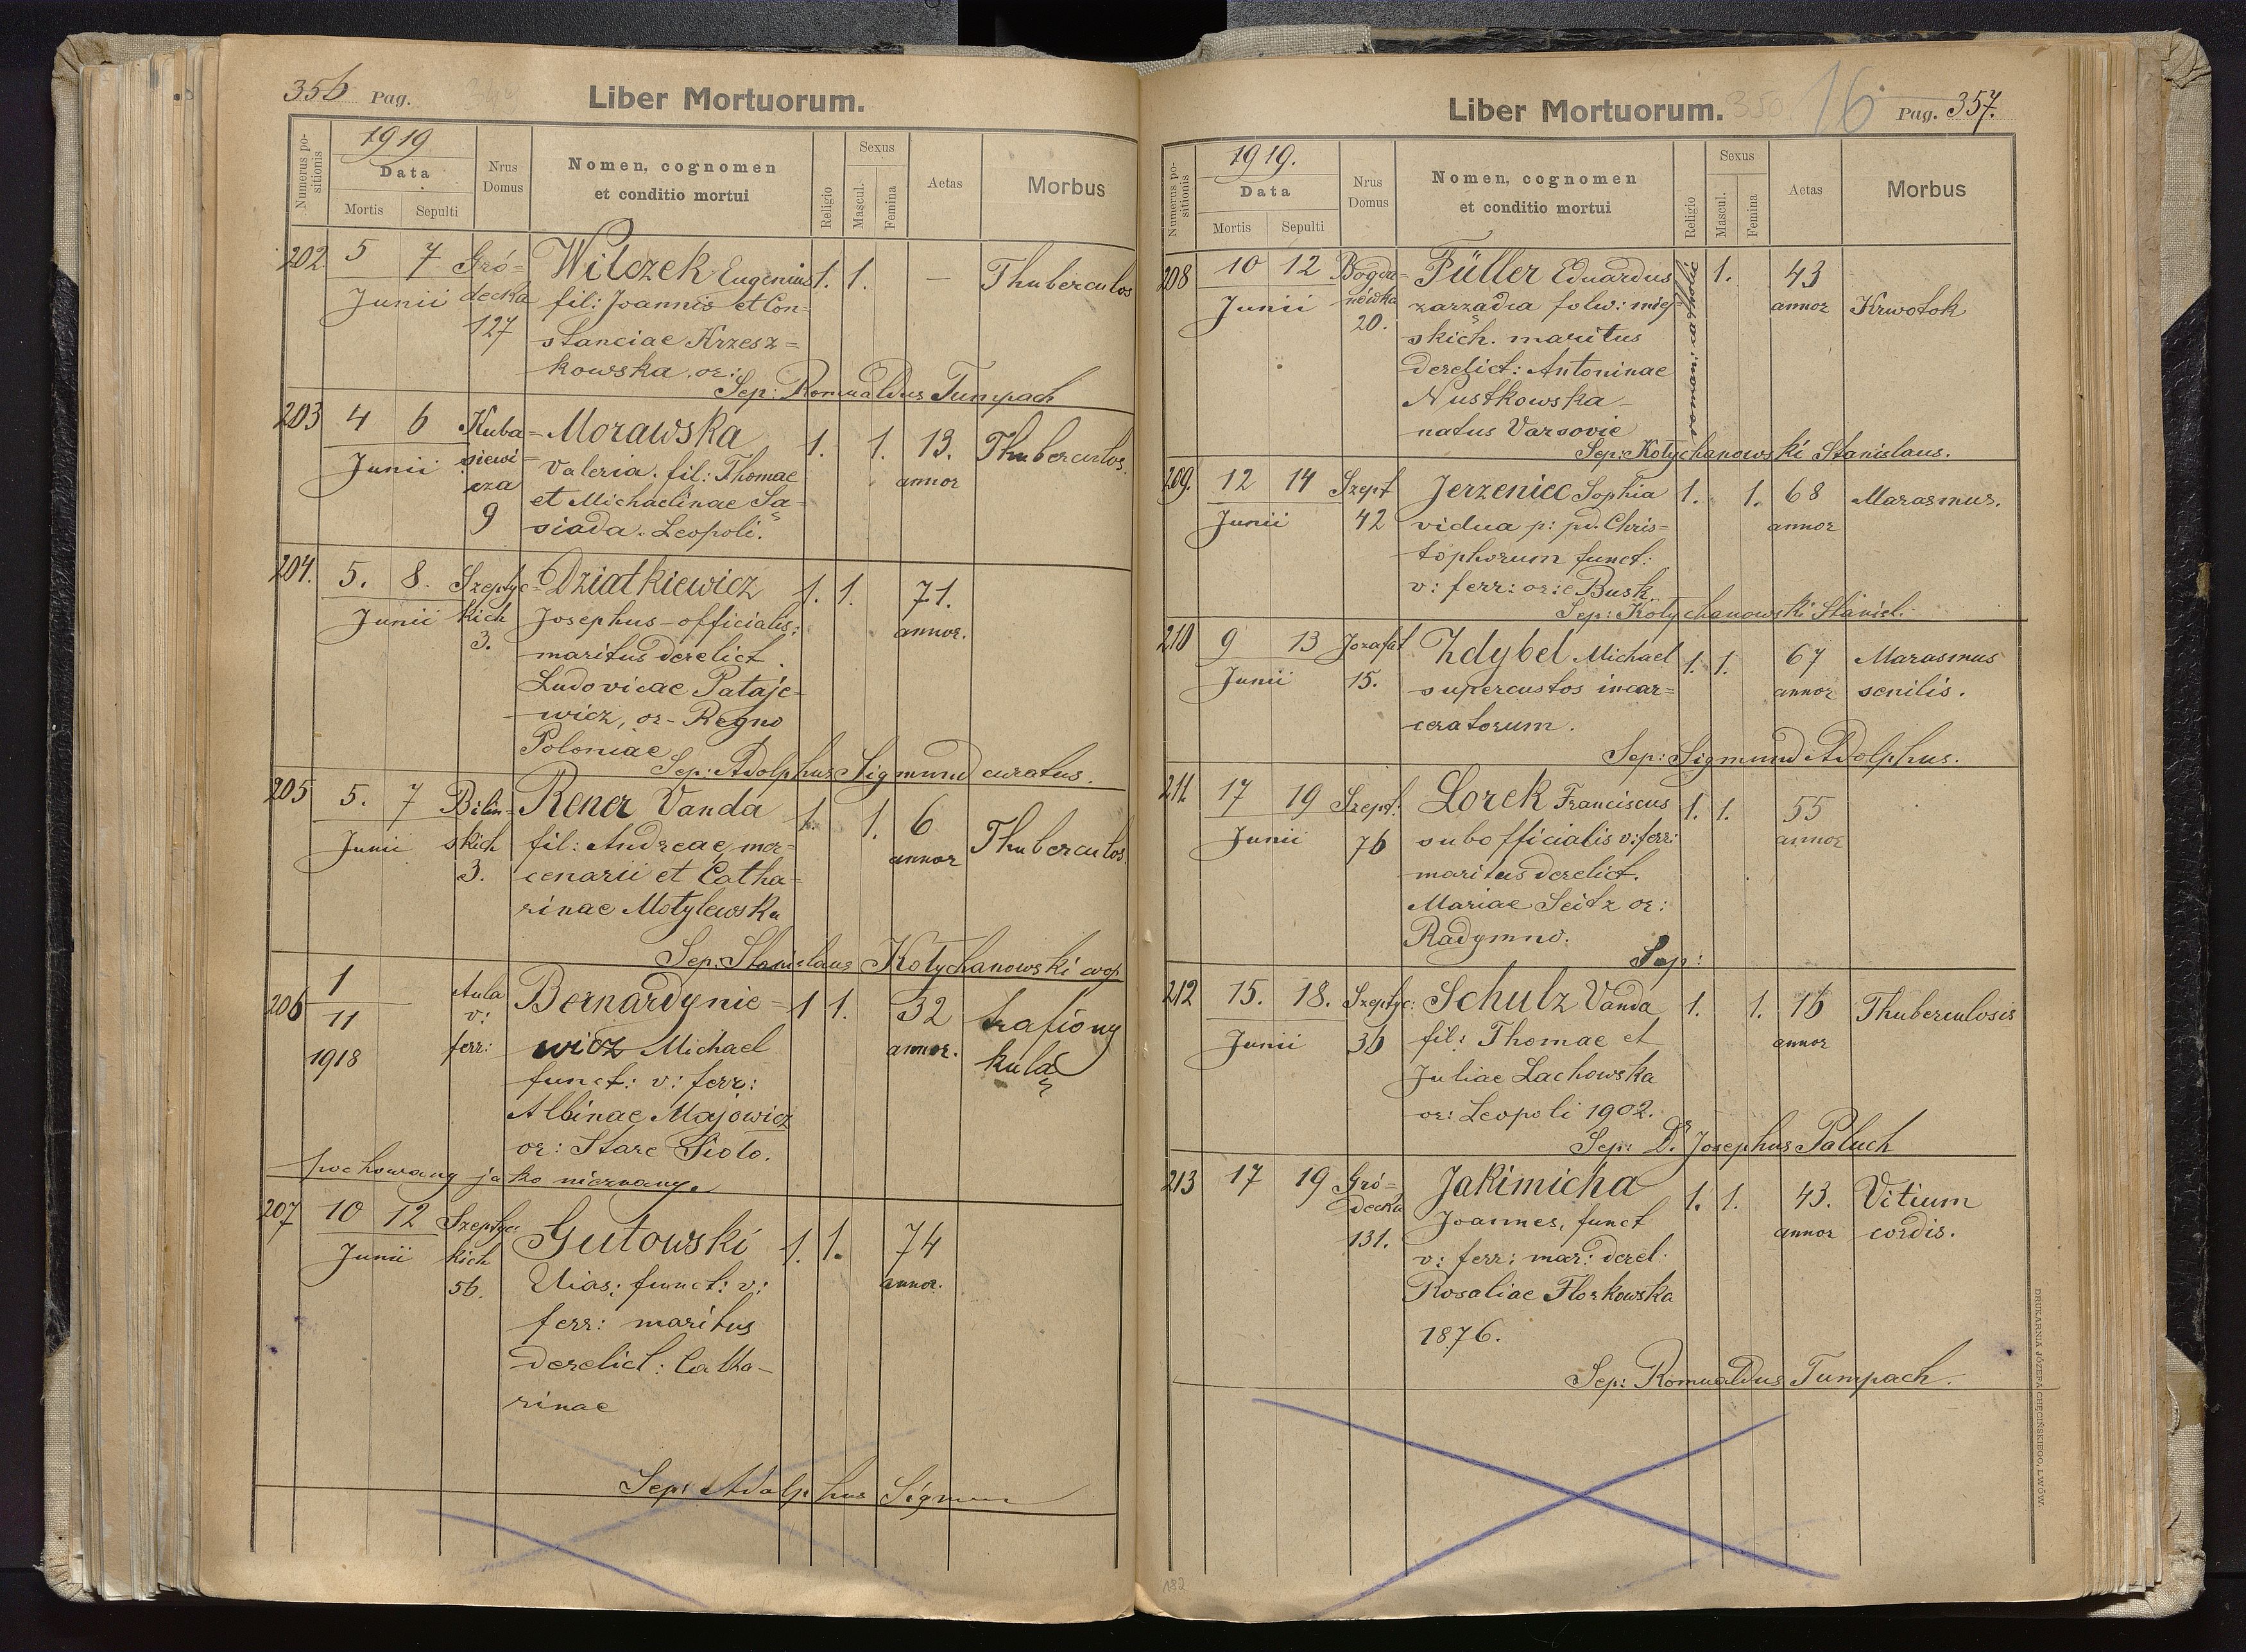 356 Pag.
Liber Mortuorum.
Numerus positionis
1919
Data
Mortis
Sepulti
Nrus Domus
Nomen, cognomen
et conditio mortui
Religio
Sexus
Mascul.
Femina
Aetas
Morbus
202 5 7 Gró= Wilczek Eugenius 1. 1. — Thuberculos
Junii decka fil: Joannis et Con=
127 stanciae Krzesz=
kowska. or:
Sep: Romualdus Tumpach
203 4 6 Kuba= Morawska 1. 1. 13. Thuberculos.
Junii siewi Valeria. fil: Thomae annor
cza et Michaelinae Są=
9 siada. Leopoli.
204. 5. 8. Szeptyc= Dziatkiewicz 1. 1. 71.
Junii kich Josephus - officialis: annor.
3. maritus derelict.
Ludovicae Pataje=
wicz, or - Regno
Poloniae
Sep: Adolphus Sigmund curatus.
205 5. 7 Bilin= Rener Vanda 1. 1. 6 Thuberculos.
Junii skich fil: Andreae, mer= annor
3. cenarii et Catha=
rinae Motylewska
Sep: Stanislaus Kotychanowski coop
206 1 Aula Bernardynie= 1 1. 32 trafiony
11 v: wicz Michael annor. kulą
1918 ferr: funct: v: ferr:
Albinae Majowicz
or: Stare Sioło.
pochowany jako nieznany.
207 10 12 Szeptyc Gutowski 1. 1. 74
Junii kich Elias: funct: v: annor.
56. ferr: maritus
derelict: Catha-
rinae
Sep: Adolphus Sigmun
Liber Mortuorum.
350
16
Pag. 357.
Numerus positionis
1919.
Data
Mortis
Sepulti
Nrus Domus
Nomen, cognomen
et conditio mortui
Religio
Sexus
Mascul.
Femina
Aetas
Morbus
208 10 12 Bogda= Füller Eduardus romani: catholic 1. 43
Junii nówka zarządca folw: miej= annor Krwotok
20. skich. maritus
derelict: Antoninae
Nustkowska -
natus Varsovie
Sep: Kotychanowski Stanislaus.
209. 12 14 Szept Jerzeniec Sophia 1. 1. 68 Marasmus.
Junii 42 vidua p: pd. Chris= annor
tophorum funct:
v: ferr: or: e Busk.
Sep: Kotychanowski Stanisl.
210 9 13 Jozafat Zdybel Michael 1. 1. 67 Marasmus
Junii 15. supercustos incar= annor senilis.
ceratorum.
Sep: Sigmund Adolphus.
211 17 19 Szept. Lorek Franciscus 1. 1. 55
Junii 76 subofficialis v: ferr: annor
maritus derelict.
Mariae Seitz or:
Radymno.
Sep:
212 15. 18. Szeptyc: Schulz Vanda 1. 1. 16 Thuberculosis
Junii 36 fil: Thomae et annor
Juliae Lachowska
or: Leopoli 1902.
Sep: Dr. Josephus Paluch
213 17 19 Gró= Jakimicha 1. 1. 43. Vitium
decka Joannes, funct annor cordis.
131. v: ferr: mar: derel:
Rosaliae Florkowska
1876.
Sep: Romualdus Tumpach.
DRUKARNIA JÓZEFA CHĘCIŃSKIEGO, LWÓW.
182